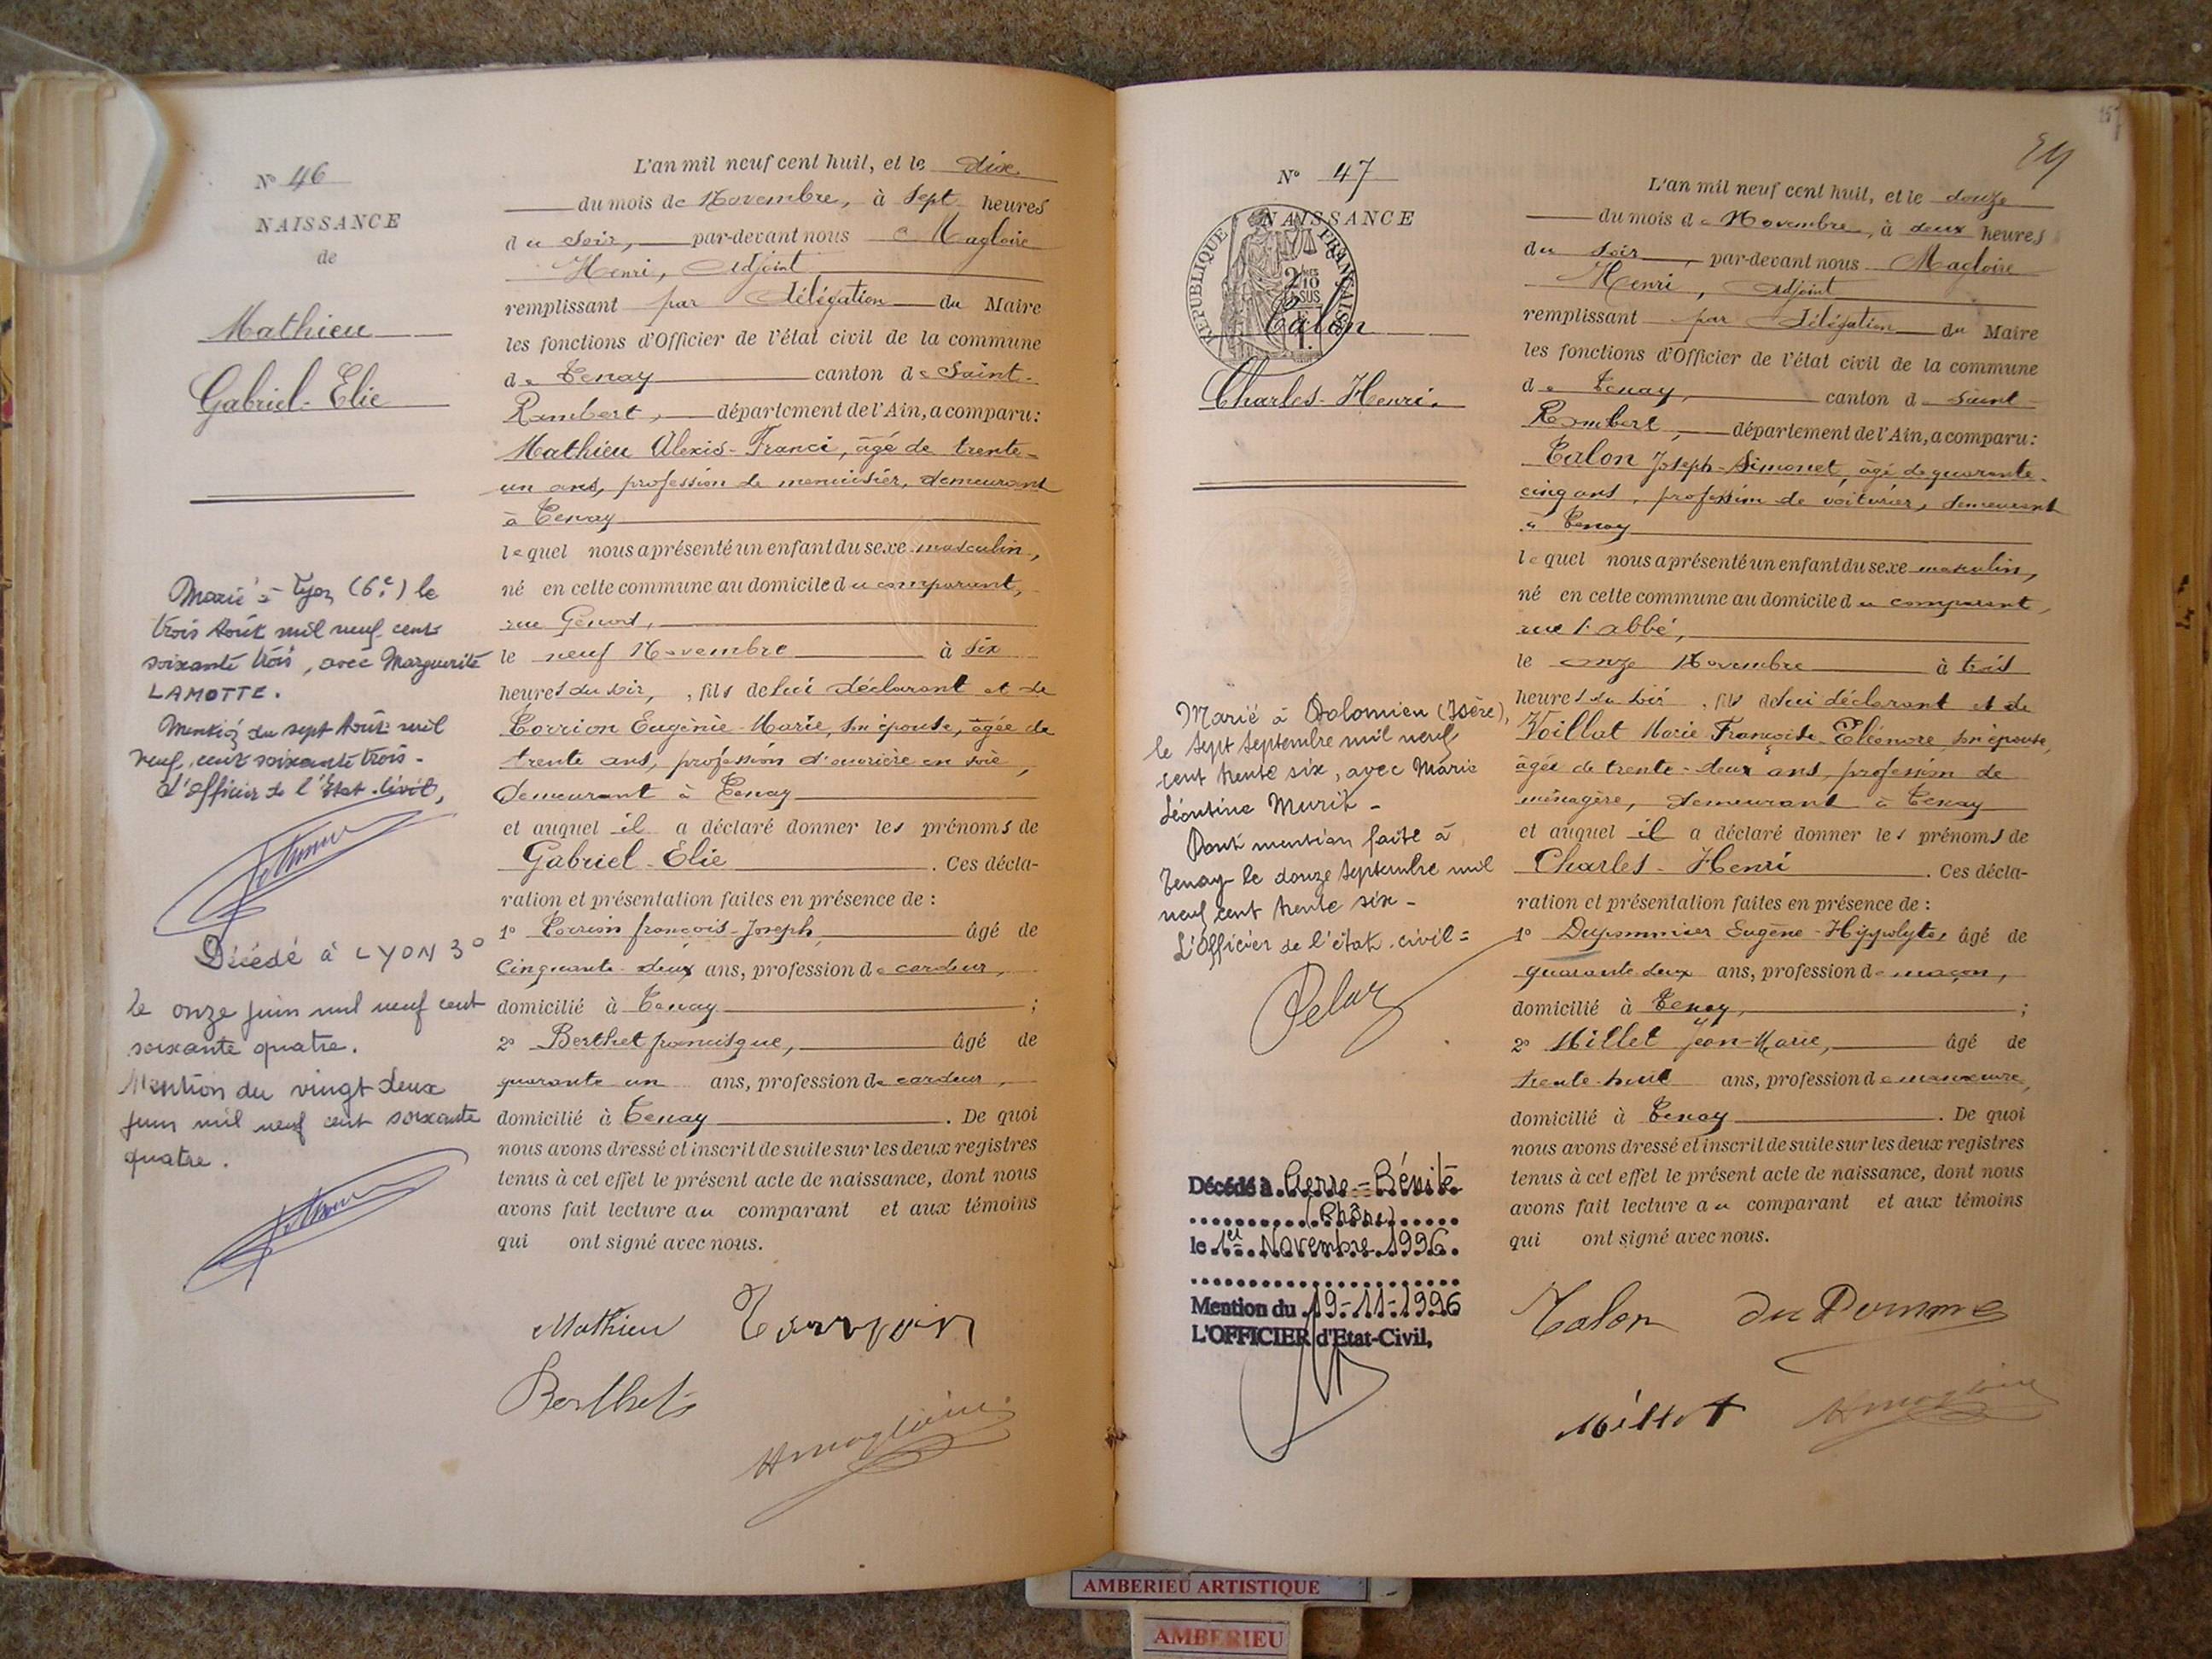 Nº 46
NAISSANCE
de
Mathieu
Gabriel-Elie
L'an mil neuf cent huit, et le dix
du mois de Novembre, à sept heures
du soir, par-devant nous Magloire
Henri, Adjoint
remplissant par délégation du Maire
les fonctions d'Officier de l'état civil de la commune
de Tenay canton de Saint-
Rambert, département de l'Ain, a comparu:
Mathieu Alexis-Franci, âgé de trente-
un ans, profession de menuisier, demeurant
à Tenay
lequel nous a présenté un enfant du sexe masculin,
né en cette commune au domicile du comparant,
rue Génod,
le neuf Novembre à six
heures du soir, fils de lui déclarant et de
Torrion Eugènie-Marie, son épouse, âgée de
trente ans, profession d'ouvrière en soie,
demeurant à Tenay
et auquel il a déclaré donner les prénoms de
Gabriel-Elie. Ces décla-
ration et présentation faites en présence de :
1º Torrion françois-Joseph, âgé de
cinquante-deux ans, profession de cardeur,
domicilié à Tenay ;
2º Berthet francisque, âgé de
quarante un ans, profession de cardeur,
domicilié à Tenay. De quoi
nous avons dressé et inscrit de suite sur les deux registres
tenus à cet effet le présent acte de naissance, dont nous
avons fait lecture au comparant et aux témoins
qui ont signé avec nous.
Mathieu Torrion
Berthet
Hmagloire
Marié à Lyon (6e) le
trois Août mil neuf cent
soixante trois, avec Marguerite
LAMOTTE.
Mention du sept Août mil
neuf cent soixante trois.
L'officier de l'Etat-Civil,
Décédé à LYON 3º
le onze juin mil neuf cent
soixante quatre.
Mention du vingt deux
juin mil neuf cent soixante
quatre.
57
Nº 47
NAISSANCE
REPUBLIQUE FRANÇAISE
2/10
EN SUS
Talon
Charles-Henri.
L'an mil neuf cent huit, et le douze
du mois de Novembre, à deux heures
du soir, par-devant nous Magloire
Henri, Adjoint
remplissant par délégation du Maire
les fonctions d'Officier de l'état civil de la commune
de Tenay, canton de Saint
Rambert, département de l'Ain, a comparu:
Talon Joseph-Simonet, âgé de quarante-
cinq ans, profession de voiturier, demeurant
à Tenay
lequel nous a présenté un enfant du sexe masculin,
né en cette commune au domicile du comparant,
rue l'abbé,
le onze Novembre à trois
heures du soir, fils de lui déclarant et de
Voillat Marie Françoise-Eléonore son épouse,
âgée de trente-deux ans, profession de
ménagère, demeurant à Tenay
et auquel il a déclaré donner les prénoms de
Charles-Henri. Ces décla-
ration et présentation faites en présence de :
1º Dupommier Eugène-Hippolyte, âgé de
quarante deux ans, profession de maçon,
domicilié à Tenay, ;
2º Millet Jean-Marie, âgé de
trente-huit ans, profession de manœuvre,
domicilié à Tenay. De quoi
nous avons dressé et inscrit de suite sur les deux registres
tenus à cet effet le présent acte de naissance, dont nous
avons fait lecture au comparant et aux témoins
qui ont signé avec nous.
Talon
Millet Hmagloire
Marié à Dolomieu (Isère),
le sept septembre mil neuf
cent trente six, avec Marie
Léontine Murit -
Dont mention faite à
Tenay le douze septembre mil
neuf cent trente six -
L'Officier de l'état civil =
Décédé à Pierre-Bénite
(Rhône)
le 1er Novembre 1996.
Mention du 19-11-1996
L'OFFICIER d'Etat-Civil,
AMBERIEU ARTISTIQUE
AMBERIEU